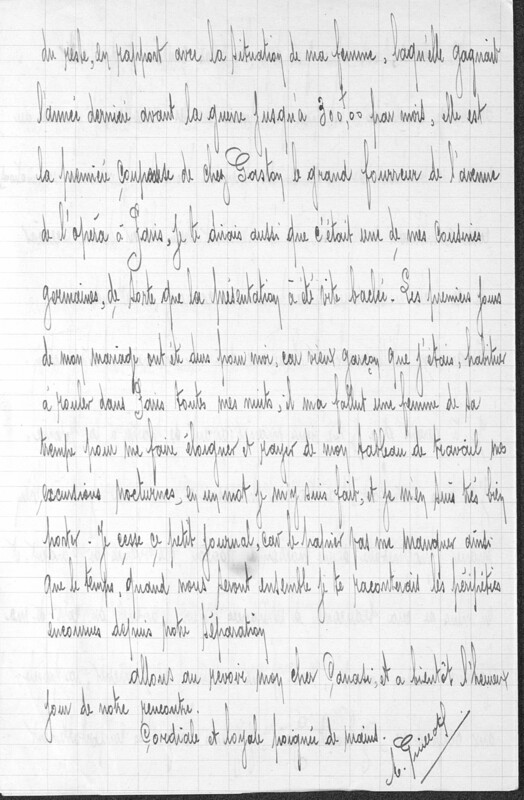 du reste, en rapport avec la situation de ma femme, laquelle gagnait
l'année dernière avant la guerre jusqu'a 300f,00 par mois, elle est
la première coupeuse de chez Gaston le grand fourreur de l'avenue
de l'opéra à Paris, je te dirais aussi que c'était une de mes cousines
germaines, de sorte que la présentation à été vite baclée. Les premiers jours
de mon mariage ont été durs pour moi, car vieux garçon que j'étais, habituer
à rouler dans Paris toutes mes nuits, il ma fallut une femme de sa
trempe pour me faire éloigner et rayer de mon tableau de travail mes
excursions nocturnes, en un mot je m'y suis fait, et je m'en suis très bien
porter. Je cesse ce petit journal, car le papier vas me manquer ainsi
que le temps, quand nous seront ensemble je te raconterait les péripéties
encourues depuis notre séparation
allons au revoire mon cher et a bientôt l'heureux
jour de notre rencontre.
Cordiale et loyale poignée de mains.